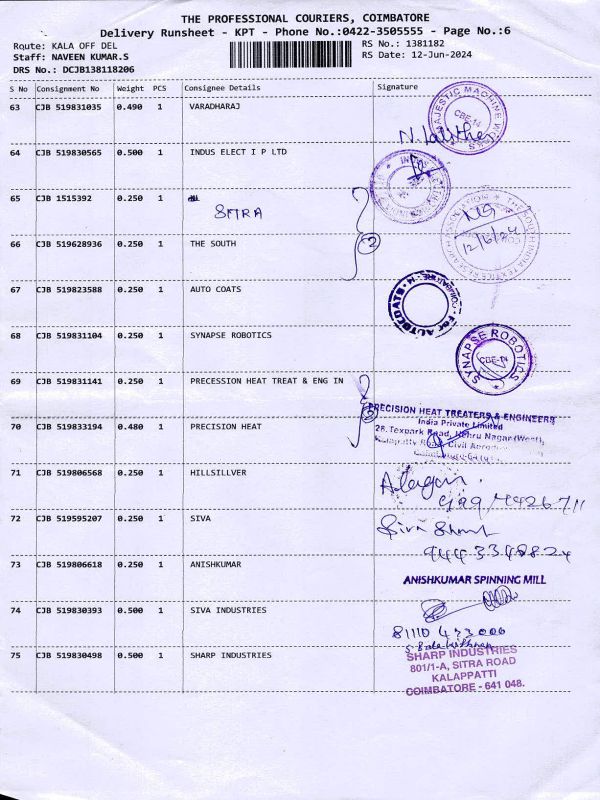 THE PROFESSIONAL COURIERS, COIMBATORE
Delivery Runsheet - KPT - Phone No.:0422-3505555 - Page No.:6
Route: KALA OFF DEL
RS No.: 1381182
Staff: NAVEEN KUMAR.S
RS Date: 12-Jun-2024
DRS No.: DCJB138118206
S No Consignment No Weight PCS Consignee Details Signature
63 CJB 519831035 0.490 1 VARADHARAJ
MAJESTIC MACHINE WORKS
CBE-14
N. Lalitha
64 CJB 519830565 0.500 1 INDUS ELECT I P LTD
65 CJB 1515392 0.250 1
SITRA
THE SOUTH INDIA TEXTILE RESEARCH ASSOCIATION
12/6/24
2
66 CJB 519628936 0.250 1 THE SOUTH
67 CJB 519823588 0.250 1 AUTO COATS
For AUTOCOATS
COIMBATORE - 14
68 CJB 519831104 0.250 1 SYNAPSE ROBOTICS
SYNAPSE ROBOTICS
CBE-14
69 CJB 519831141 0.250 1 PRECESSION HEAT TREAT & ENG IN
2
70 CJB 519833194 0.480 1 PRECISION HEAT
PRECISION HEAT TREATERS & ENGINEERS
India Private Limited
26, Texpark Road, Nehru Nagar (West),
Kalapatty Road, Civil Aerodrome
71 CJB 519806568 0.250 1 HILLSILLVER
72 CJB 519595207 0.250 1 SIVA
9443348824
73 CJB 519806618 0.250 1 ANISHKUMAR
ANISHKUMAR SPINNING MILL
74 CJB 519830393 0.500 1 SIVA INDUSTRIES
81110 433006
75 CJB 519830498 0.500 1 SHARP INDUSTRIES
SHARP INDUSTRIES
801/1-A, SITRA ROAD
KALAPPATTI
COIMBATORE - 641 048.